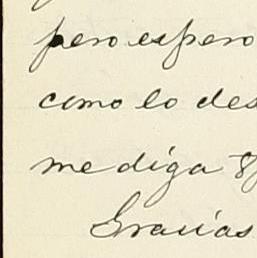 pero espero
como lo des
me diga
Gracias